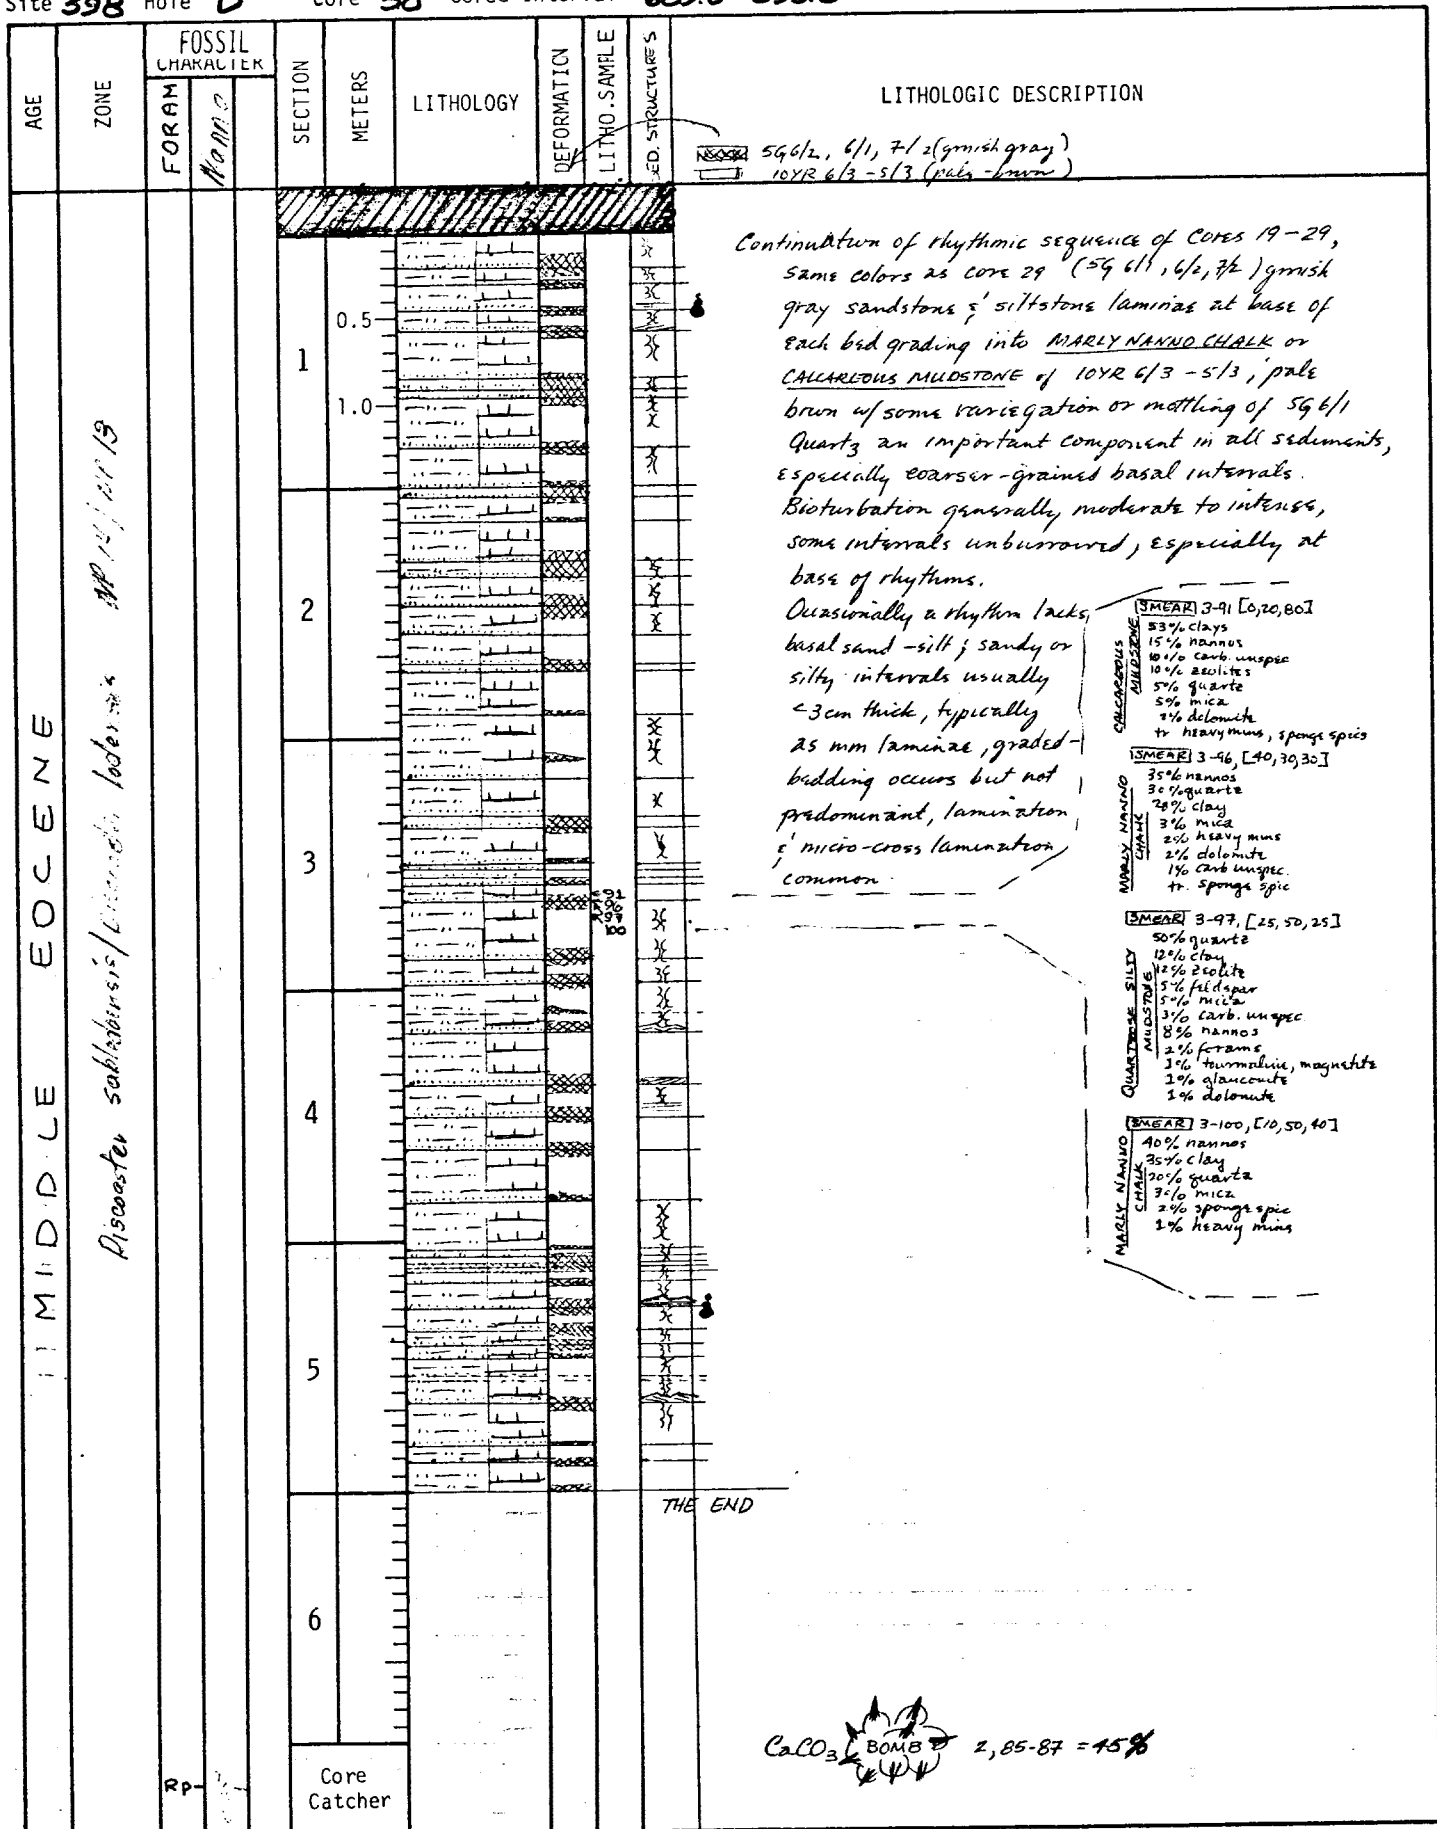 Site 398 Hole D Core 30 Cored Interval
AGE
ZONE
FOSSIL
CHARACTER
FORAM
Nanno
SECTION
METERS
LITHOLOGY
DEFORMATION
LITHO.SAMPLE
SED. STRUCTURES
LITHOLOGIC DESCRIPTION
5G6/2, 6/1, 7/2 (grnish gray)
10YR 6/3 - 5/3 (pale-brwn)
MIDDLE EOCENE
Discoaster
0.5
1.0
1
2
3
4
5
6
Core
Catcher
Rp
91
96
97
100
Continuation of rhythmic sequence of Cores 19-29,
same colors as core 29 (5G 6/1, 6/2, 7/2) grnish
gray sandstone & siltstone laminae at base of
each bed grading into MARLY NANNO CHALK or
CALCAREOUS MUDSTONE of 10YR 6/3 - 5/3, pale
brwn w/ some variegation or mottling of 5G 6/1
Quartz an important component in all sediments,
especially coarser-grained basal intervals.
Bioturbation generally moderate to intense,
some intervals unburrowed, especially at
base of rhythms.
Occasionally a rhythm lacks
basal sand-silt; sandy or
silty intervals usually
<3cm thick, typically
as mm laminae, graded-
bedding occurs but not
predominant, lamination
& micro-cross lamination
common
CALCAREOUS
MUDSTONE
SMEAR 3-91 [0,20,80]
53% clays
15% nannos
10% carb. unspec
10% zeolites
5% quartz
5% mica
2% dolomite
tr heavy mins, sponge spics
MARLY NANNO
CHALK
SMEAR 3-96, [40,30,30]
35% nannos
30% quartz
28% clay
3% mica
2% heavy mins
2% dolomite
1% carb unspec.
tr. sponge spic
QUARTZOSE SILTY
MUDSTONE
SMEAR 3-97, [25,50,25]
50% quartz
12% clay
12% zeolite
5% feldspar
5% mica
3% carb. unspec.
8% nannos
2% forams
1% tourmaline, magnetite
1% glauconite
1% dolomite
MARLY NANNO
CHALK
SMEAR 3-100, [10,50,40]
40% nannos
35% clay
20% quartz
3% mica
2% sponge spic
1% heavy mins
THE END
CaCO3 BOMB 2, 85-87 = 45%